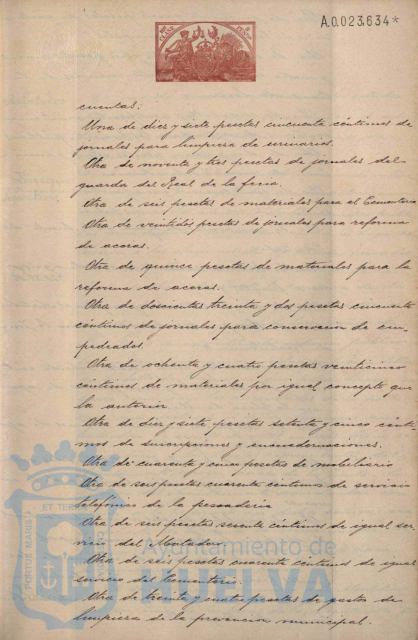 A.0.023.634*
cuentas:
Una de diez y siete pesetas cincuenta céntimos de
jornales para limpieza de urinarios.
Otra de noventa y tres pesetas de jornales del
guarda del Real de la feria.
Otra de seis pesetas de materiales para el Cementerio
Otra de veintidos pesetas de jornales para reforma
de aceras.
Otra de quince pesetas de materiales para la
reforma de aceras.
Otra de doscientas treinta y dos pesetas cincuenta
céntimos de jornales para conservacion de em-
pedrados.
Otra de ochenta y cuatro pesetas veinticinco
céntimos de materiales por igual concepto que
la anterior
Otra de diez y siete pesetas setenta y cinco cénti-
mos de suscripciones y encuadernaciones.
Otra de cuarenta y cinco pesetas de mobiliario
Otra de seis pesetas cuarenta céntimos de servicio
telefónico de la pescaderia
Otra de seis pesetas sesenta céntimos de igual ser-
vicio del Matadero
Otra de seis pesetas cuarenta céntimos de igual
servicio del Cementerio.
Otra de treinta y cuatro pesetas de gastos de
limpieza de la prevencion municipal.
PORTUS MARIS
ET TERRAE
Ayuntamiento de
HUELVA